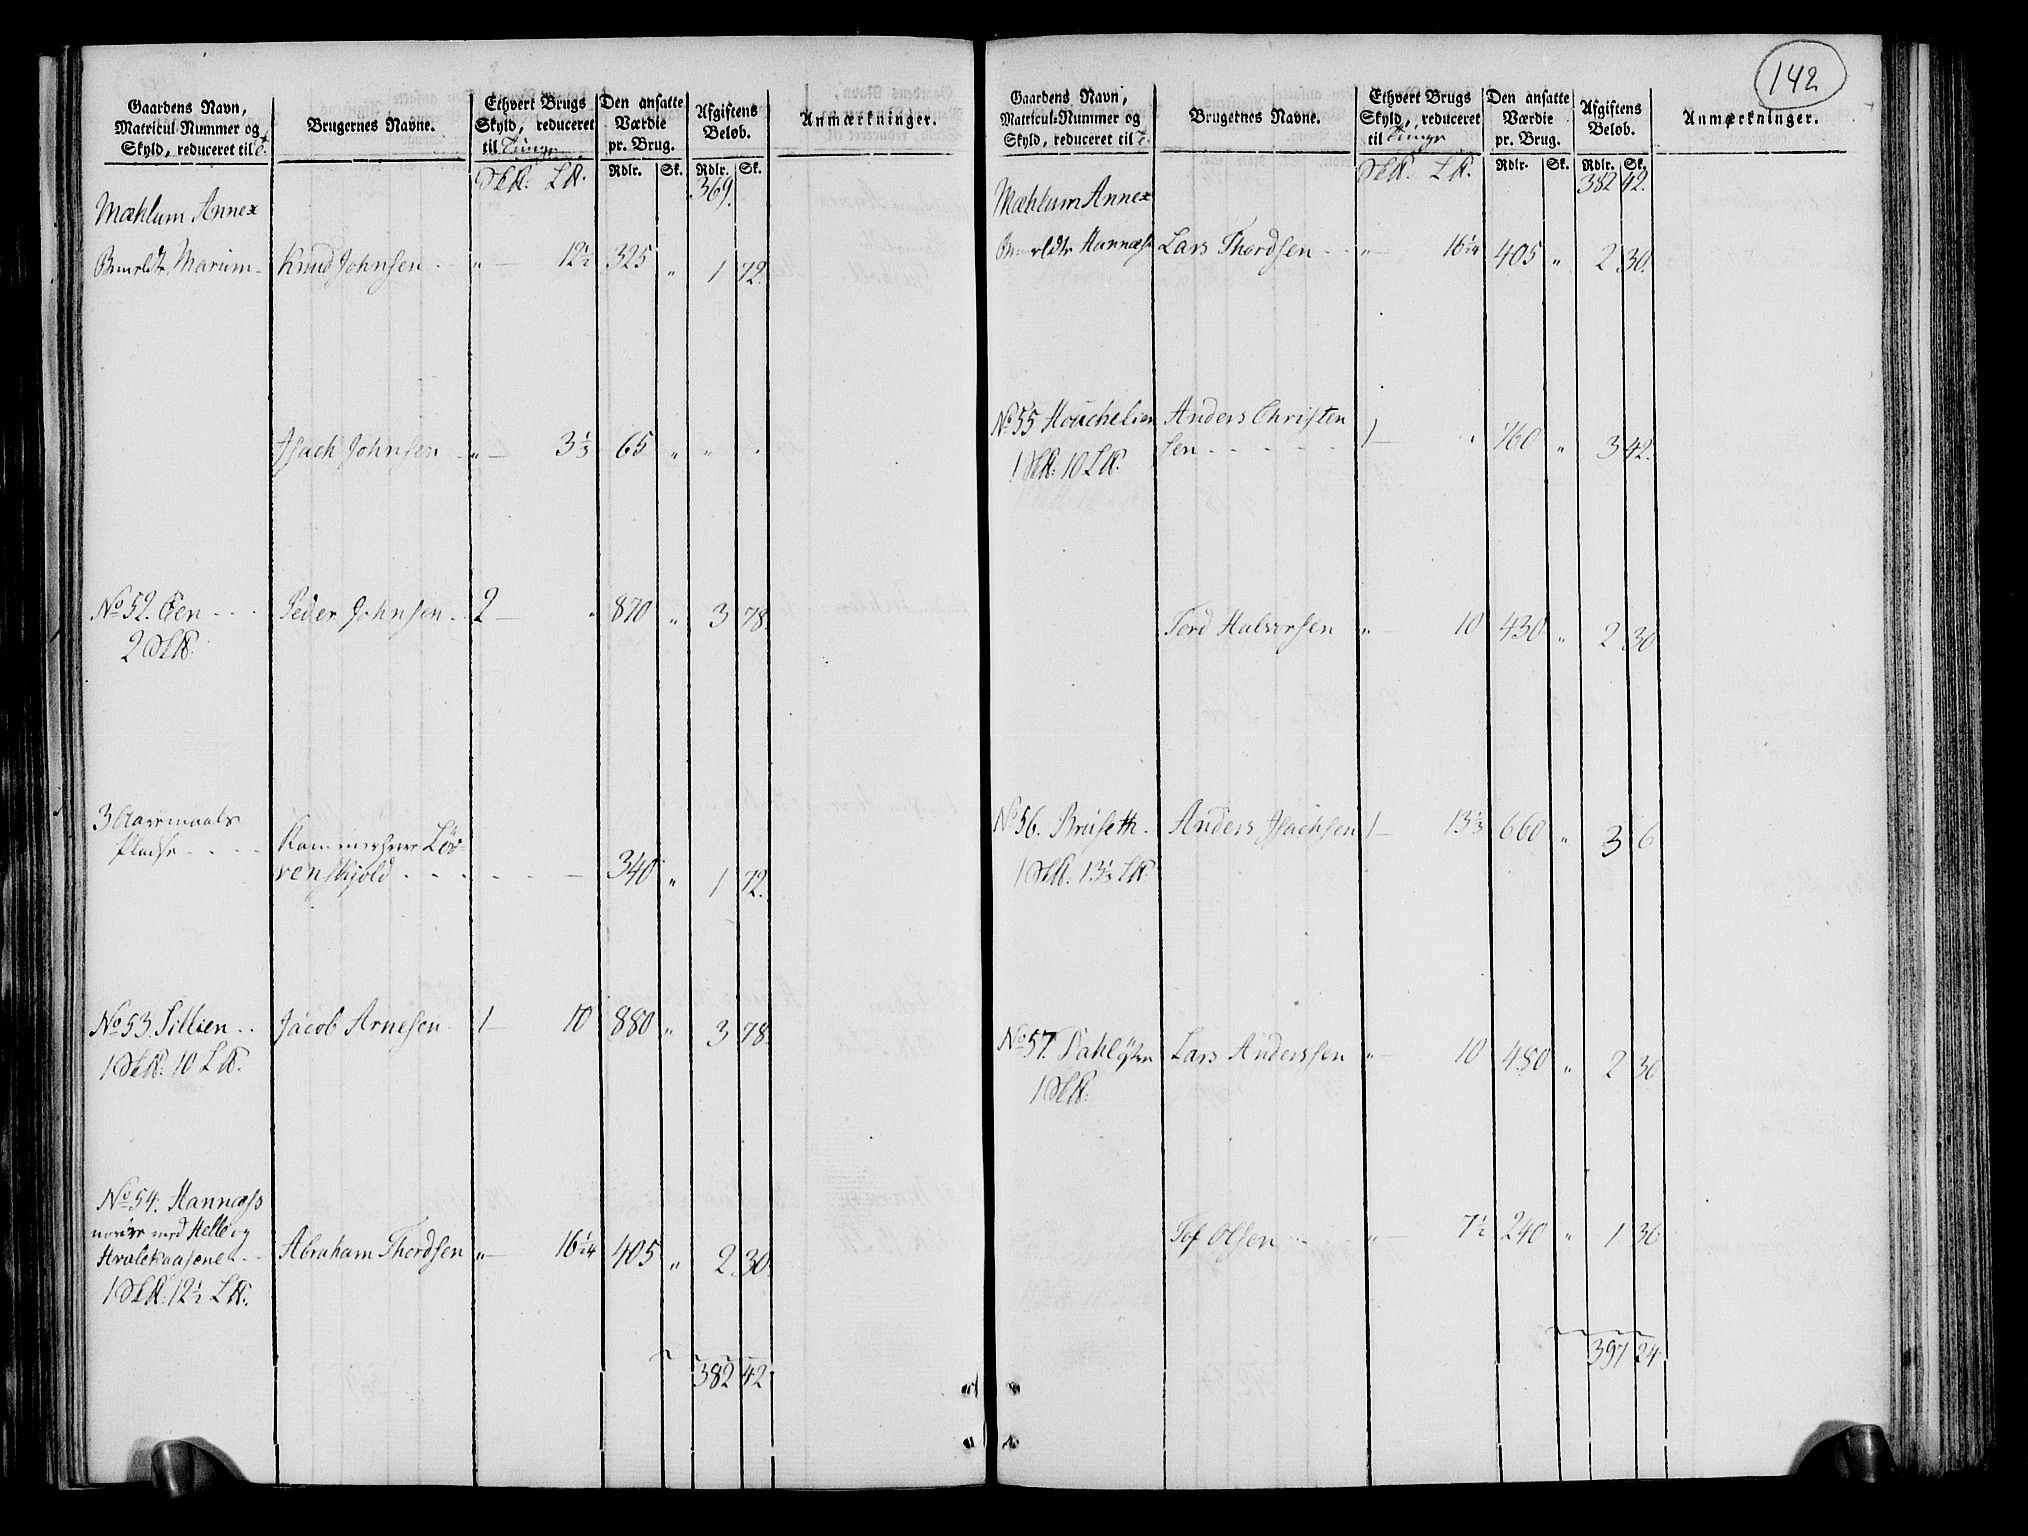 142
Gaardens Navn, Matricul-Nummer og Skyld, reduceret til
Brugernes Navne.
Ethvert Brugs Skyld, reduceret til Tunge
Den ansatte Værdie pr. Brug.
Afgiftens Beløb.
Anmærkninger.
Rdlr. Sk. Rdlr. Sk.
369.
Mæhlum Annex
Marum - Knud Johnsen - - " - 12½ 325 " 1 72.
Isach Johnsen - " - 3⅓ 65 " " "
No 52. Een - - - Peder Johnsen - 2 - " 870 " 3 78.
3 Aaremaals
Pladse - - - - Kammerherre Löv
venskjold - - - - - - 340 " 1 72.
No 53. Sillien - - Jacob Arnesen - 1 - 10 880 " 3 78.
No 54. Hannæss
nordre med Helle og
Abraham Thordsen " - 16¼ 405 " 2 30.
382 42
Gaardens Navn, Matricul-Nummer og Skyld, reduceret til
Brugernes Navne.
Ethvert Brugs Skyld, reduceret til Tunge
Den ansatte Værdie pr. Brug.
Afgiftens Beløb.
Anmærkninger.
Rdlr. Sk. Rdlr. Sk.
382 42.
Mæhlum Annex
Hannæss Lars Thordsen - - " - 16¼ 405 " 2 30.
No 55 Anders Christen
sen - - - - - 1 - " 760 " 3 42.
Tord Halvorsen " - 10 430 " 2 30
No 56. Bruseth - Anders Isachsen 1 - 13⅓ 660 " 3 6
No 57. Lars Anderssen " - 10 480 " 2 30
Olsen - - " - 7½ 240 " 1 36
397 24